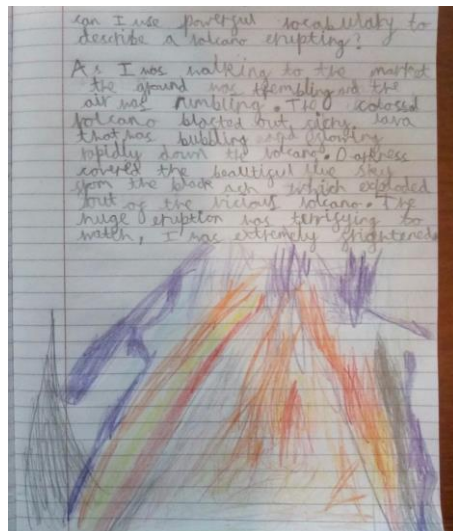 can I use powerful vocabulary to
describe a volcano erupting?
As I was walking to the market
the ground was trembling and the
air was rumbling. The colossal
volcano blasted out lava
that was bubbling and glowing
rapidly down the volcano. Darkness
covered the beautiful blue sky
from the black ash which exploded
out of the vicious volcano. The
huge eruption was terrifying to
watch, I was extremely frightened